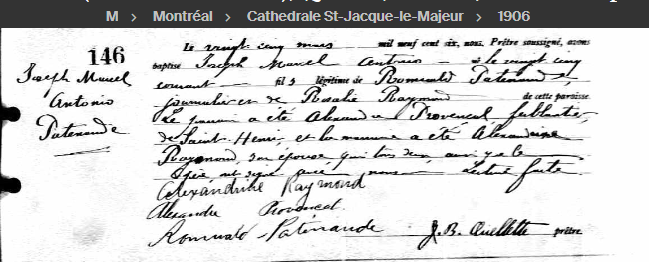 M > Montréal > Cathedrale St-Jacque-le-Majeur > 1906
146
Joseph Marcel
Antonio
Patenaude
Le vingt cinq mars mil neuf cent six, nous, Prêtre soussigné, avons
baptisé Joseph Marcel Antonio né le vingt cinq
courant fils légitime de Romuald Patenaude,
journalier et de Rosalie Raymond de cette paroisse.
Le parrain a été Alexandre Provencal, ferblantier,
de Saint-Henri, et la marraine a été Alexandrine
Raymond, son épouse, qui tous deux, ainsi que le
père ont signé avec nous. Lecture faite
Alexandrine Raymond
Alexandre Provencal.
Romuald Patenaude
J. B. Ouellette prêtre.